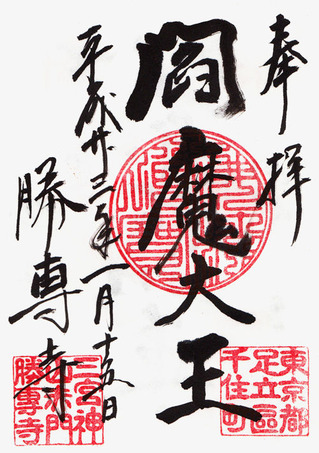 奉拝
閻魔大王
平成廿三年一月十五日
勝專寺
東京都
足立區
千住町
二宮神
勝專寺